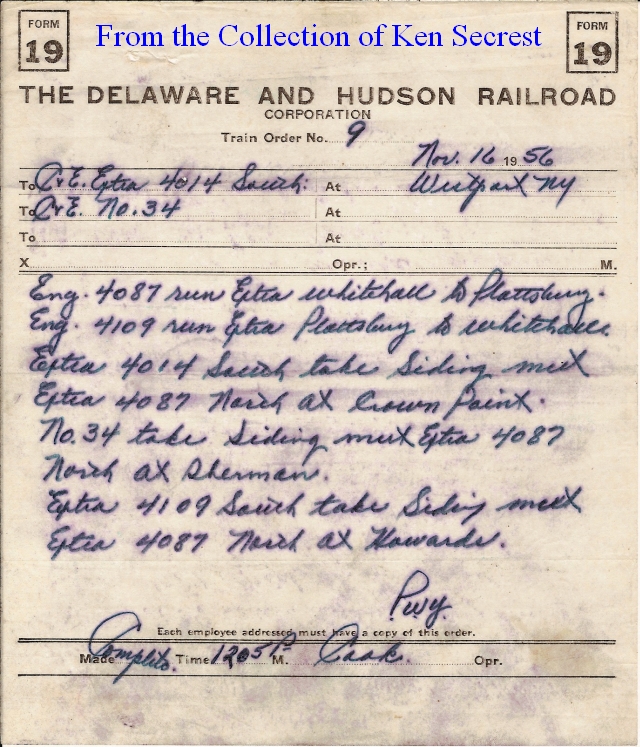 FORM 19
From the Collection of Ken Secrest
FORM 19
THE DELAWARE AND HUDSON RAILROAD
CORPORATION
Train Order No. 9
Nov. 16 1956
To C&E. Extra 4014 South: At Westport NY
To C&E. No. 34 At
To At
X Opr.; M.
Eng. 4087 run Extra Whitehall to Plattsburg.
Eng. 4109 run Extra Plattsburg to Whitehall.
Extra 4014 South take Siding meet
Extra 4087 North at Crown Point.
No. 34 take Siding meet Extra 4087
North at Sherman.
Extra 4109 South take Siding meet
Extra 4087 North at Howards.
Each employee addressed must have a copy of this order.
Made Complete. Time 1205 P M. Cook. Opr.